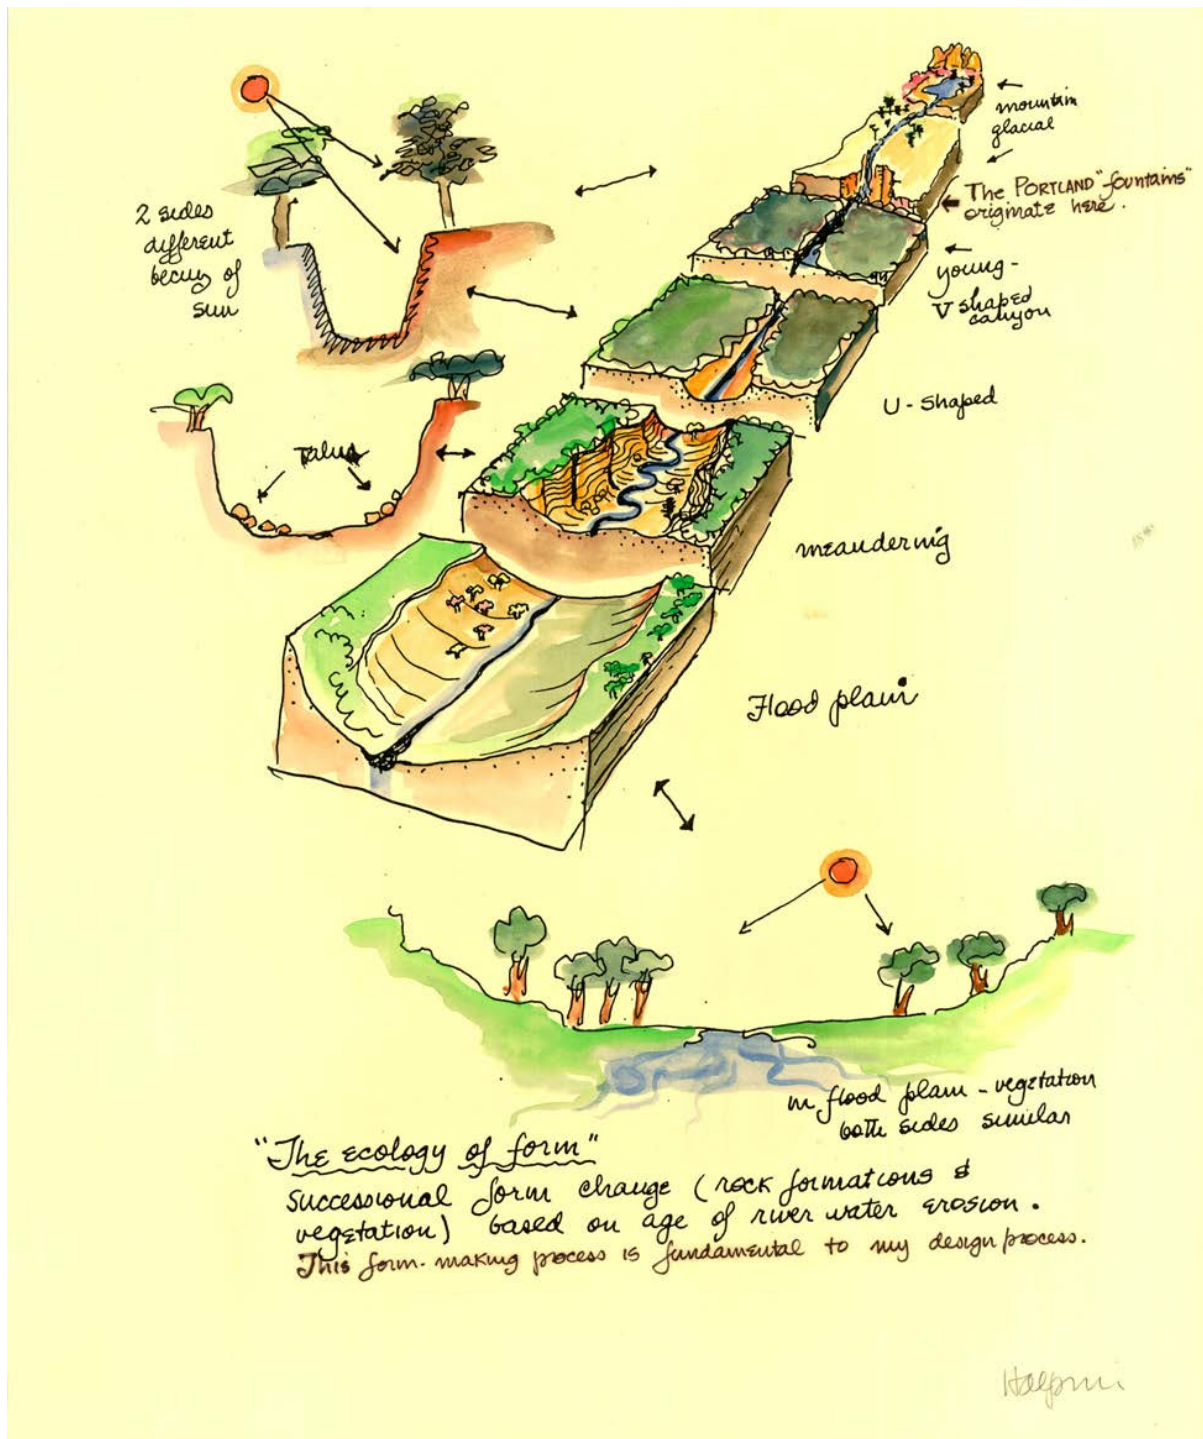 mountain
glacial
The PORTLAND "fountains"
originate here.
2 sides
different
becus of
sun
young -
V shaped
canyon
U - shaped
Talus
meandering
Flood plain
in flood plain - vegetation
both sides similar
"The ecology of form"
successional form change (rock formations &
vegetation) based on age of river water erosion.
This form-making process is fundamental to my design process.
Halprin